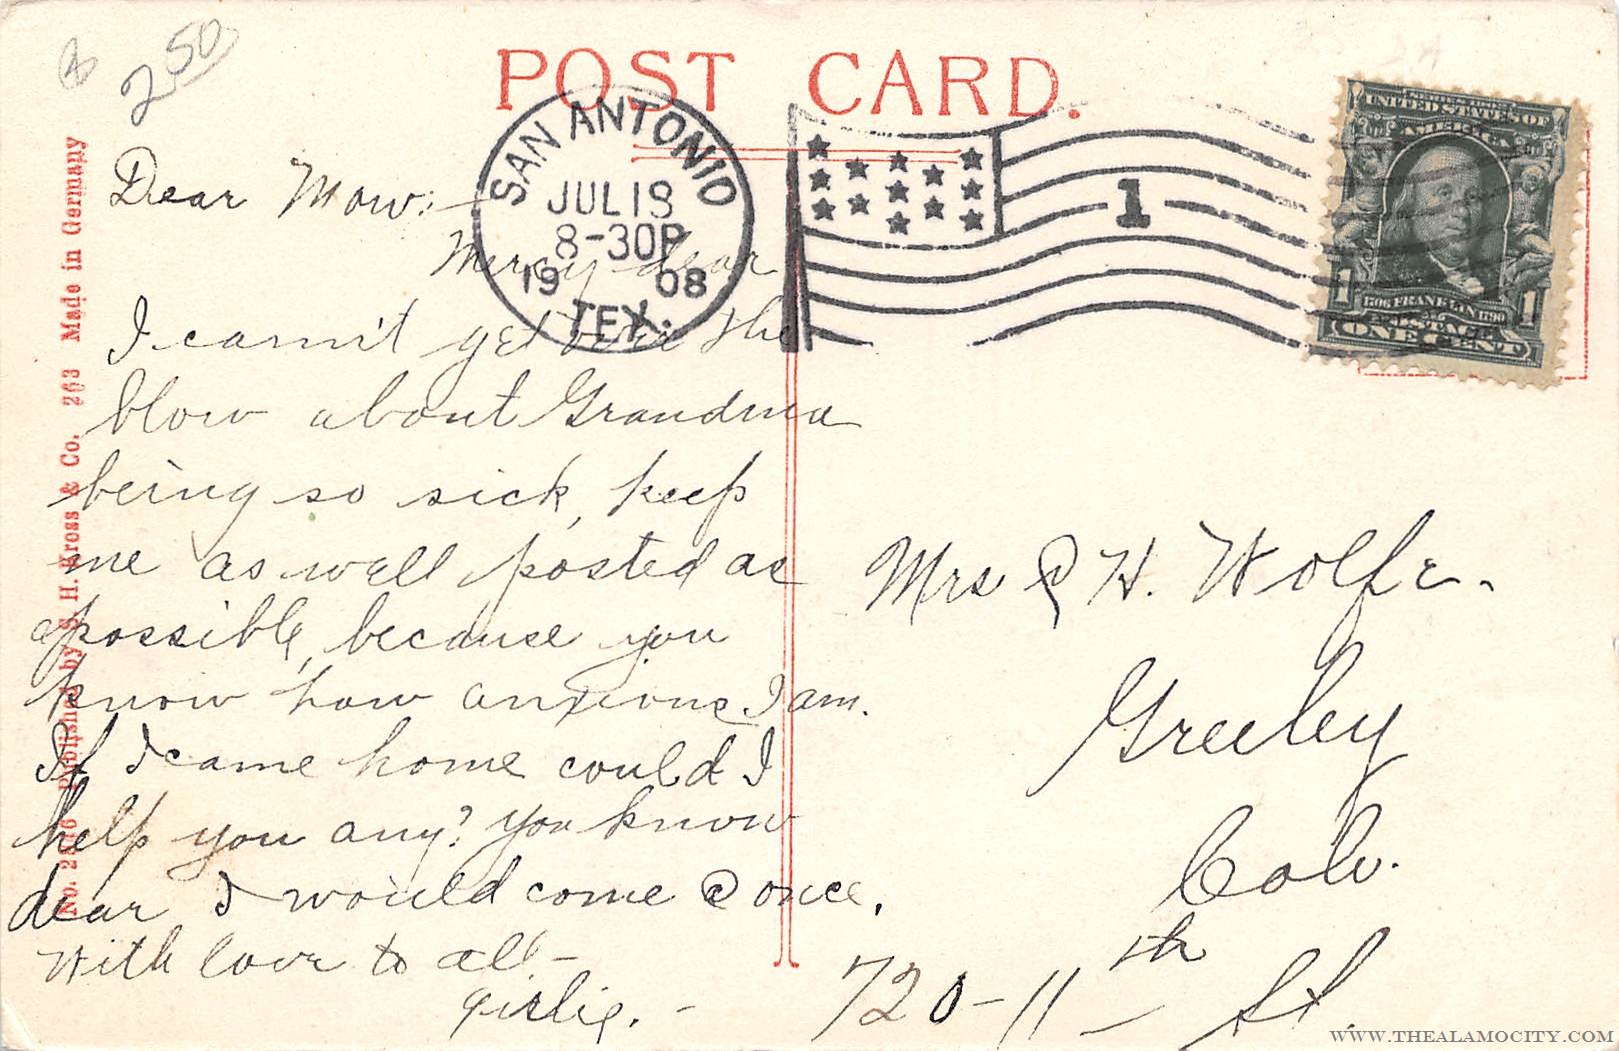 2 50
POST CARD.
SAN ANTONIO
JUL 19
8-30P
1908
TEX.
1
SERIES 1902
UNITED STATES OF
AMERICA
1706 FRANKLIN 1790
POSTAGE
1 1
ONE CENT
Dear Mow:—
Mercy dear
I cann't get over the
blow about Grandma
being so sick, keep
me as well posted as
possible, because you
know how anxious I am.
If I came home could I
help you any? you know
dear I would come @ once.
With love to all—
Girlie. —
Mrs P H. Wolfe.
Greeley
Colo.
720-11th St.
No. 2516 Published by S. H. Kross & Co. 263 Made in Germany
WWW.THEALAMOCITY.COM